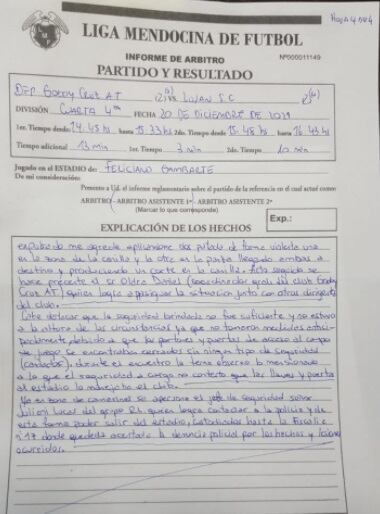 Hoja 4 de 4
LIGA MENDOCINA DE FUTBOL
INFORME DE ARBITRO
Nº000011149
PARTIDO Y RESULTADO
DEP. GODOY CRUZ A.T VS. LUJAN S.C
DIVISIÓN CUARTA 4ta FECHA 20 DE DICIEMBRE DE 2021
1er. Tiempo desde: 14.45 hs hasta 15:33 hs 2do. Tiempo desde: 15.48 hs hasta 16.43 hs
Tiempo adicional 13 min 1er. Tiempo 3 min 2do. Tiempo 10 min
Jugado en el ESTADIO de: FELICIANO GAMBARTE
De mi consideración:
Presento a Ud. el informe reglamentario sobre el partido de la referencia en el cual actué como:
ARBITRO - ARBITRO ASISTENTE 1º - ARBITRO ASISTENTE 2º
(Marcar lo que corresponde)
Exp.:
EXPLICACIÓN DE LOS HECHOS
expulsado me agrede aplicandome dos patadas de forma violenta una
en la zona de la canilla y la otra en la panza llegando ambas a
destino y produciendo un corte en la canilla. Acto seguido se
hace presente el sr Daniel (coordinador gral del club Godoy
Cruz AT) quien logra apaciguar la situación junto con otros dirigentes
del club.
Cabe destacar que la seguridad brindada no fue suficiente y no estuvo
a la altura de las circunstancias ya que no tomaron medidas
debido a que los portones y puertas de acceso al campo
de juego se encontraban cerrados sin ningun tipo de seguridad
durante el encuentro la terna observo lo mencionado
a lo que el seguridad a cargo nos contesto que las llaves y puerta
al estadio la manejaba el club.
Ya en zona de camarines se apersona el jefe de seguridad señor
Julian del grupo quien logra contactar a la policia y de
esta forma poder salir del estadio, hasta la Fiscalia
n°17 donde quedada la denuncia policial por los hechos y lesiones
ocurridas.